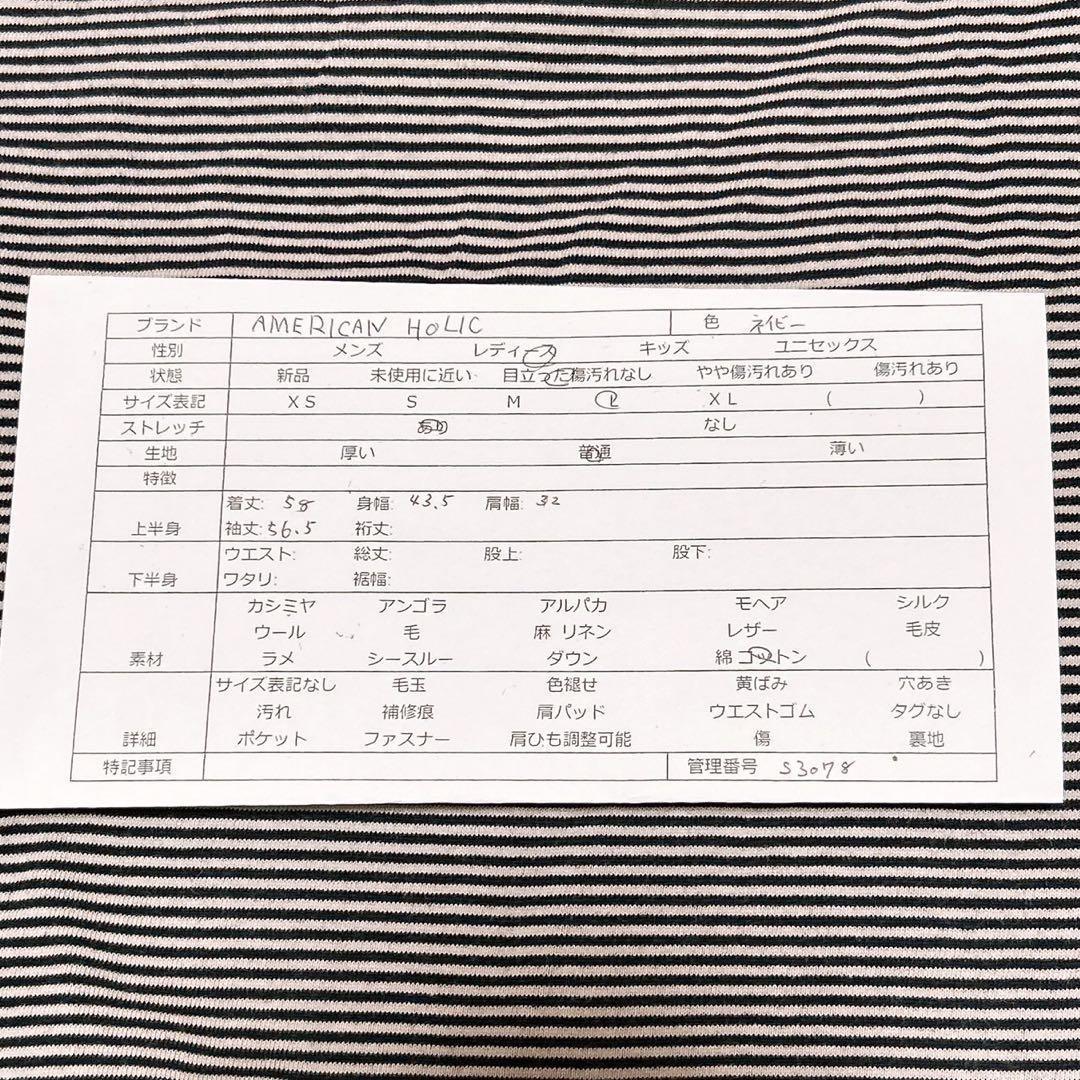 ブランド AMERICAN HOLIC 色 ネイビー
性別 メンズ レディース キッズ ユニセックス
状態 新品 未使用に近い 目立った傷汚れなし やや傷汚れあり 傷汚れあり
サイズ表記 XS S M L XL ( )
ストレッチ あり なし
生地 厚い 普通 薄い
特徴
着丈: 58 身幅: 43.5 肩幅: 32
上半身 袖丈: 56.5 裄丈:
ウエスト: 総丈: 股上: 股下:
下半身 ワタリ: 裾幅:
カシミヤ アンゴラ アルパカ モヘア シルク
ウール 毛 麻 リネン レザー 毛皮
素材 ラメ シースルー ダウン 綿 コットン ( )
サイズ表記なし 毛玉 色褪せ 黄ばみ 穴あき
汚れ 補修痕 肩パッド ウエストゴム タグなし
詳細 ポケット ファスナー 肩ひも調整可能 傷 裏地
特記事項 管理番号 S3078